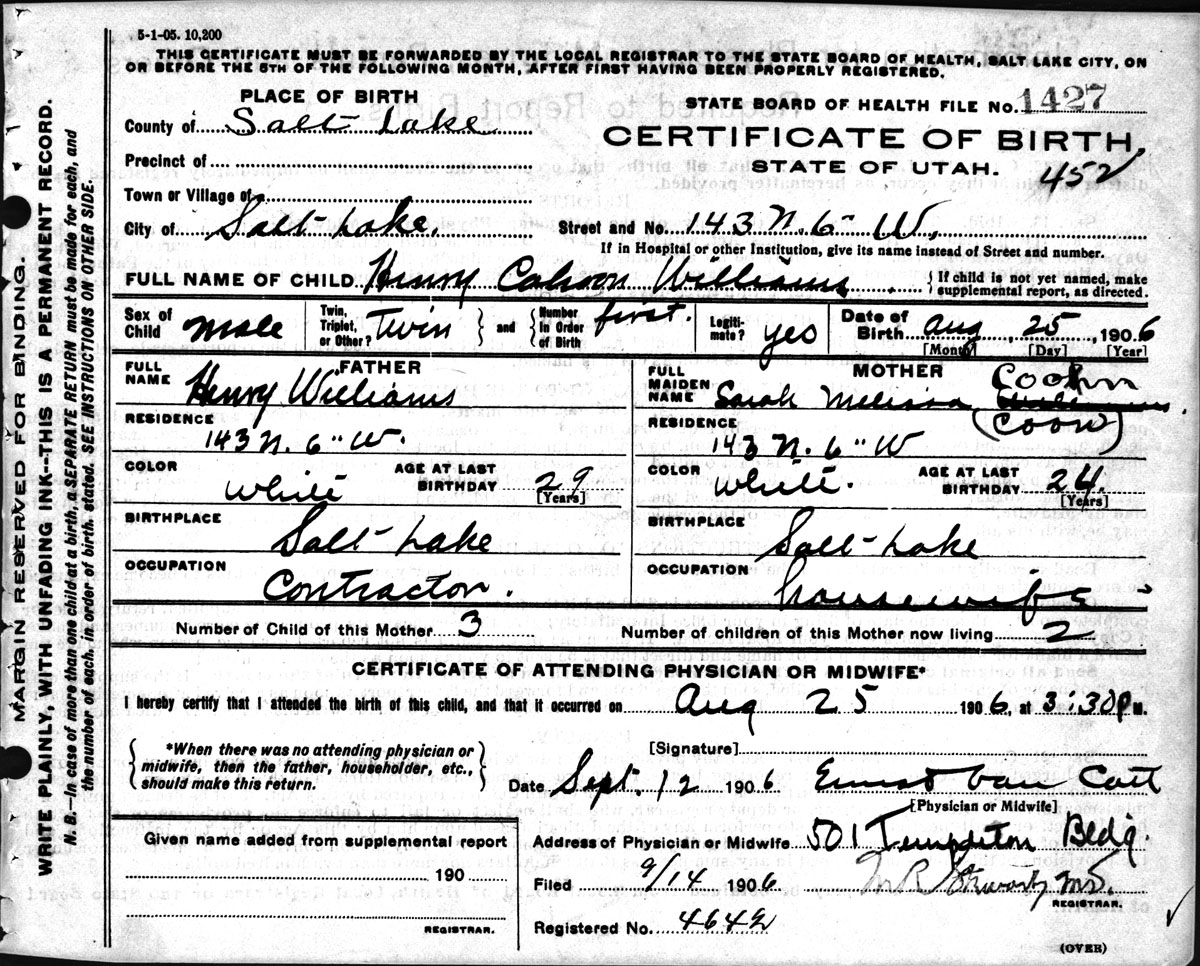 5-1-05. 10,200
THIS CERTIFICATE MUST BE FORWARDED BY THE LOCAL REGISTRAR TO THE STATE BOARD OF HEALTH, SALT LAKE CITY, ON
OR BEFORE THE 5TH OF THE FOLLOWING MONTH, AFTER FIRST HAVING BEEN PROPERLY REGISTERED.
PLACE OF BIRTH
STATE BOARD OF HEALTH FILE NO. 1427
County of Salt Lake
CERTIFICATE OF BIRTH,
Precinct of
STATE OF UTAH.
452
Town or Village of
City of Salt Lake.
Street and No. 143 N. 6" W.
If in Hospital or other Institution, give its name instead of Street and number.
FULL NAME OF CHILD Henry Cahoon Williams
{ If child is not yet named, make
supplemental report, as directed.
Sex of Child Male
Twin, Triplet, or Other? Twin } and { Number in Order of Birth first.
Legitimate? yes
Date of Birth Aug 25, 1906
[Month] [Day] [Year]
FATHER
FULL NAME Henry Williams
RESIDENCE 143 N. 6" W.
COLOR White
AGE AT LAST BIRTHDAY 29 [Years]
BIRTHPLACE Salt Lake
OCCUPATION Contractor.
MOTHER
FULL MAIDEN NAME Sarah Melissa
(Coon)
RESIDENCE 143 N. 6" W
COLOR White.
AGE AT LAST BIRTHDAY 24. [Years]
BIRTHPLACE Salt Lake
OCCUPATION housewife
Number of Child of this Mother 3
Number of children of this Mother now living 2
CERTIFICATE OF ATTENDING PHYSICIAN OR MIDWIFE*
I hereby certify that I attended the birth of this child, and that it occurred on Aug 25 1906, at 3:30 P M.
{ *When there was no attending physician or
midwife, then the father, householder, etc.,
should make this return. }
[Signature]
Date Sept. 12 1906 Ernest Van Cott
[Physician or Midwife]
Given name added from supplemental report
190
REGISTRAR.
Address of Physician or Midwife 501 Templeton Bldg.
Filed 9/14 1906 M R Stewart MD.
REGISTRAR.
Registered No. 4642
(OVER)
MARGIN RESERVED FOR BINDING.
WRITE PLAINLY, WITH UNFADING INK--THIS IS A PERMANENT RECORD.
N. B.--In case of more than one child at a birth, a SEPARATE RETURN must be made for each, and
the number of each, in order of birth, stated. SEE INSTRUCTIONS ON OTHER SIDE.